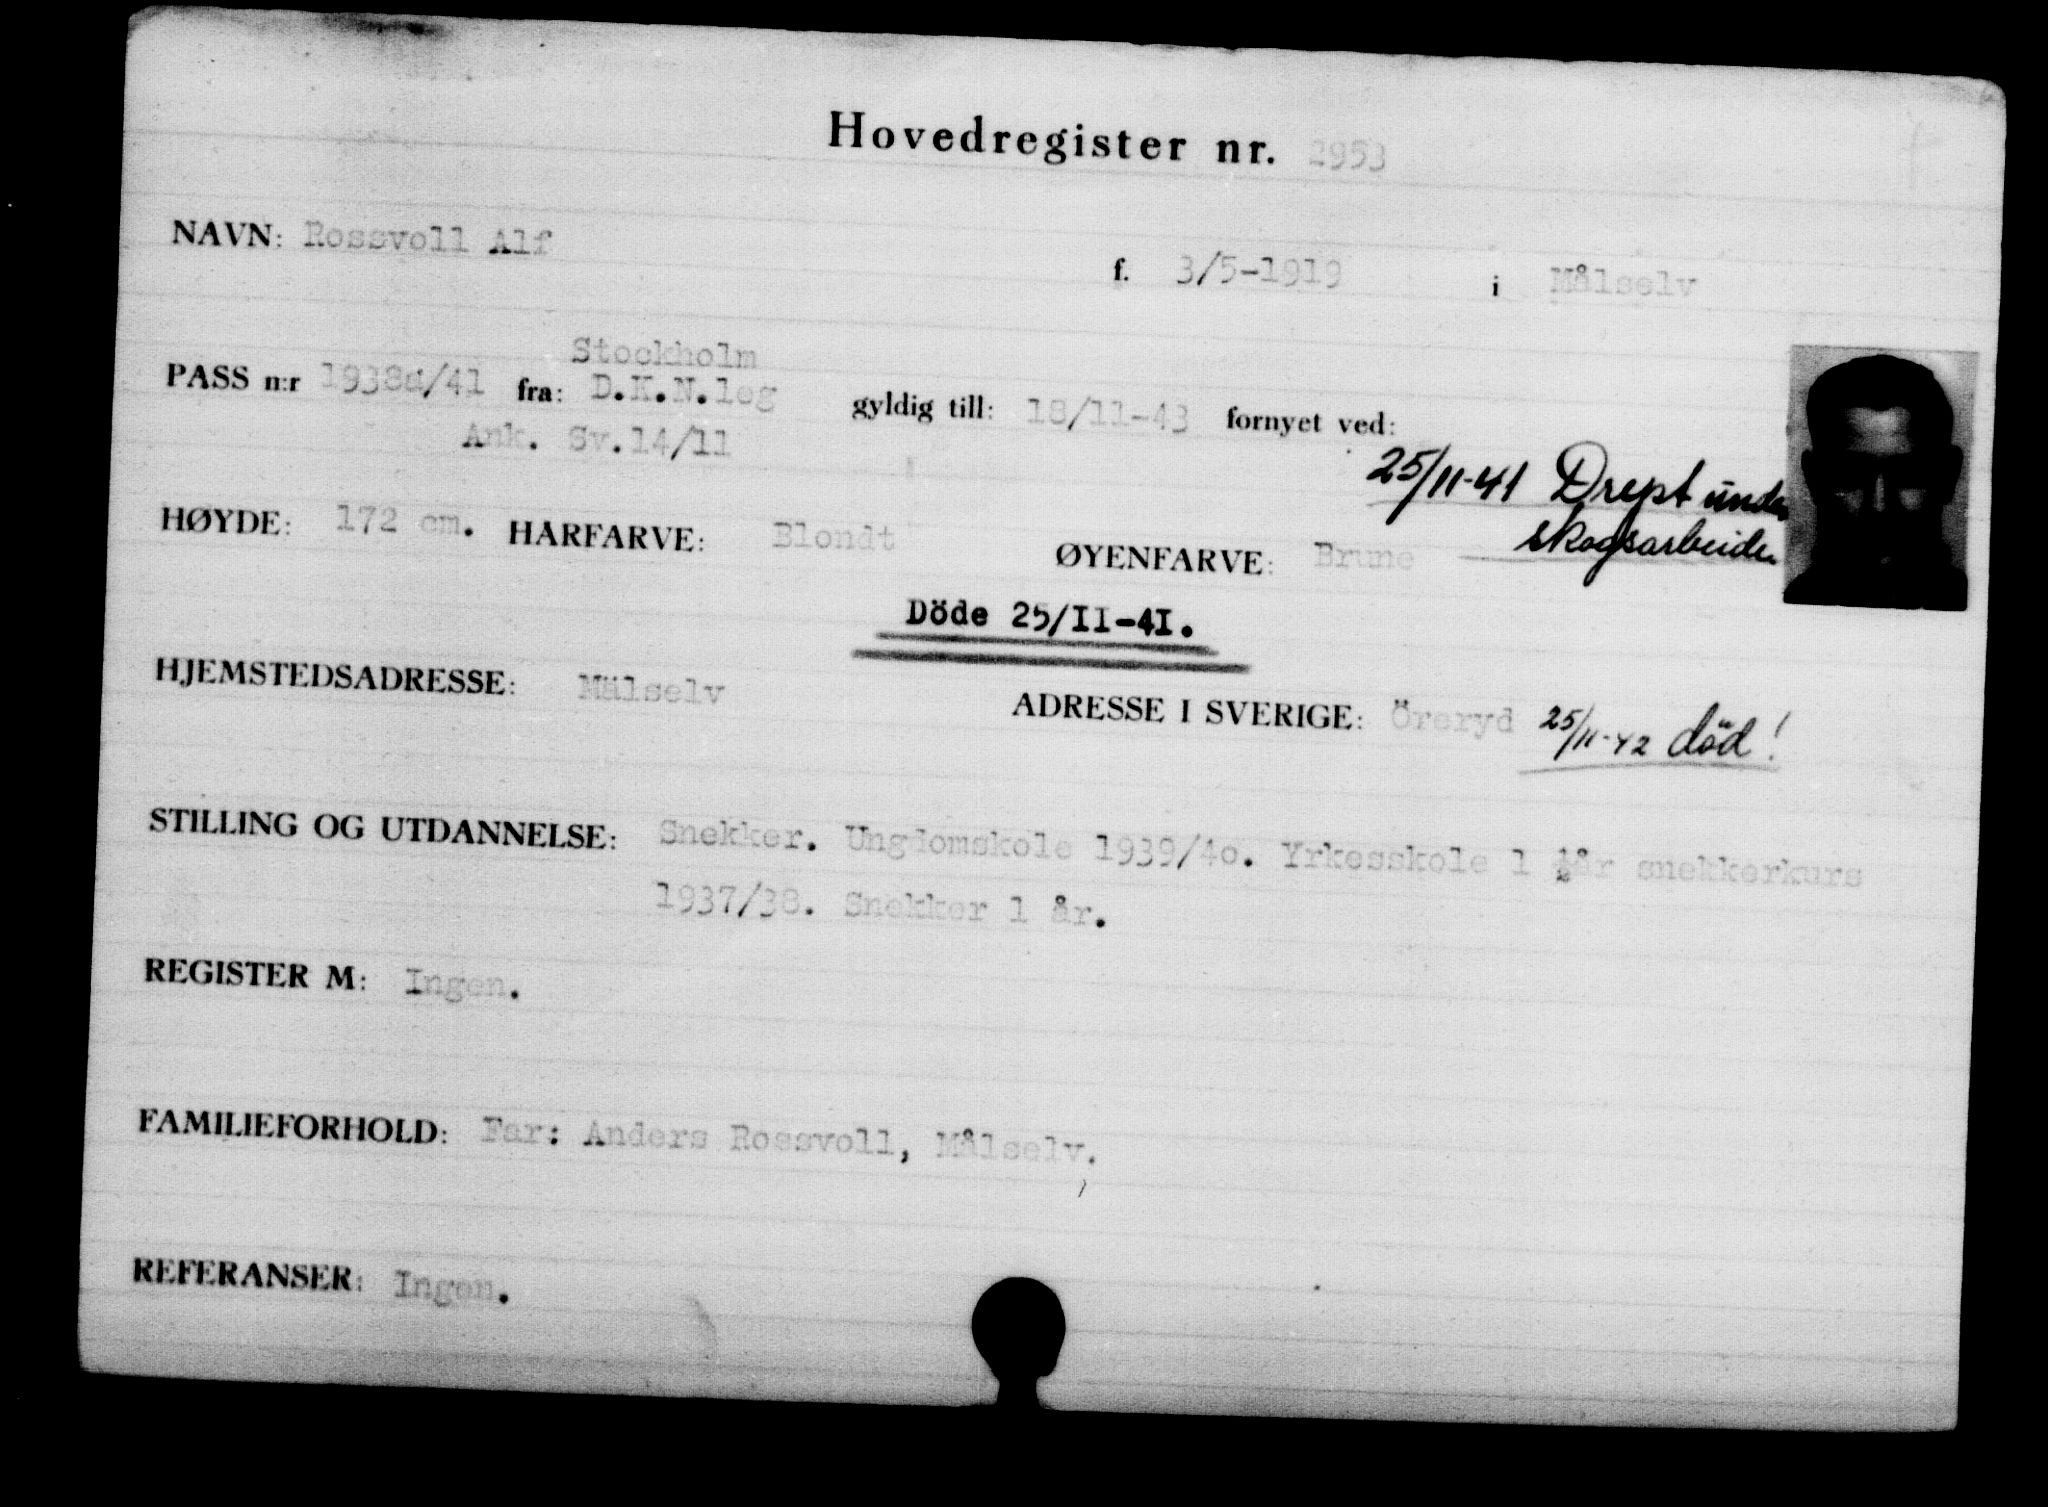 Hovedregister nr. 2953
NAVN: Rossvoll Alf f. 3/5-1919 i Målselv
Stockholm
PASS n:r 1938a/41 fra: D.K.N.leg gyldig till: 18/11-43 fornyet ved:
Ank. Sv.14/11
25/11-41 Drept under
skogsarbeide
HØYDE: 172 cm. HARFARVE: Blondt ØYENFARVE: Brune
Döde 25/II-4I.
HJEMSTEDSADRESSE: Mälselv ADRESSE I SVERIGE: Öreryd 25/11-42 död!
STILLING OG UTDANNELSE: Snekker. Ungdomskole 1939/4o. Yrkesskole 1 ½år snekkerkurs
1937/38. Snekker 1 år.
REGISTER M: Ingen.
FAMILIEFORHOLD: Far: Anders Rossvoll, Målselv.
REFERANSER: Ingen.